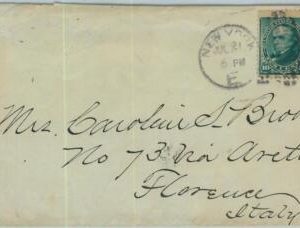 NEW YORK
JUL 21
6 PM
E
Mrs. Caroline S. Broo
No 73 Via Aret
Florence
Italy